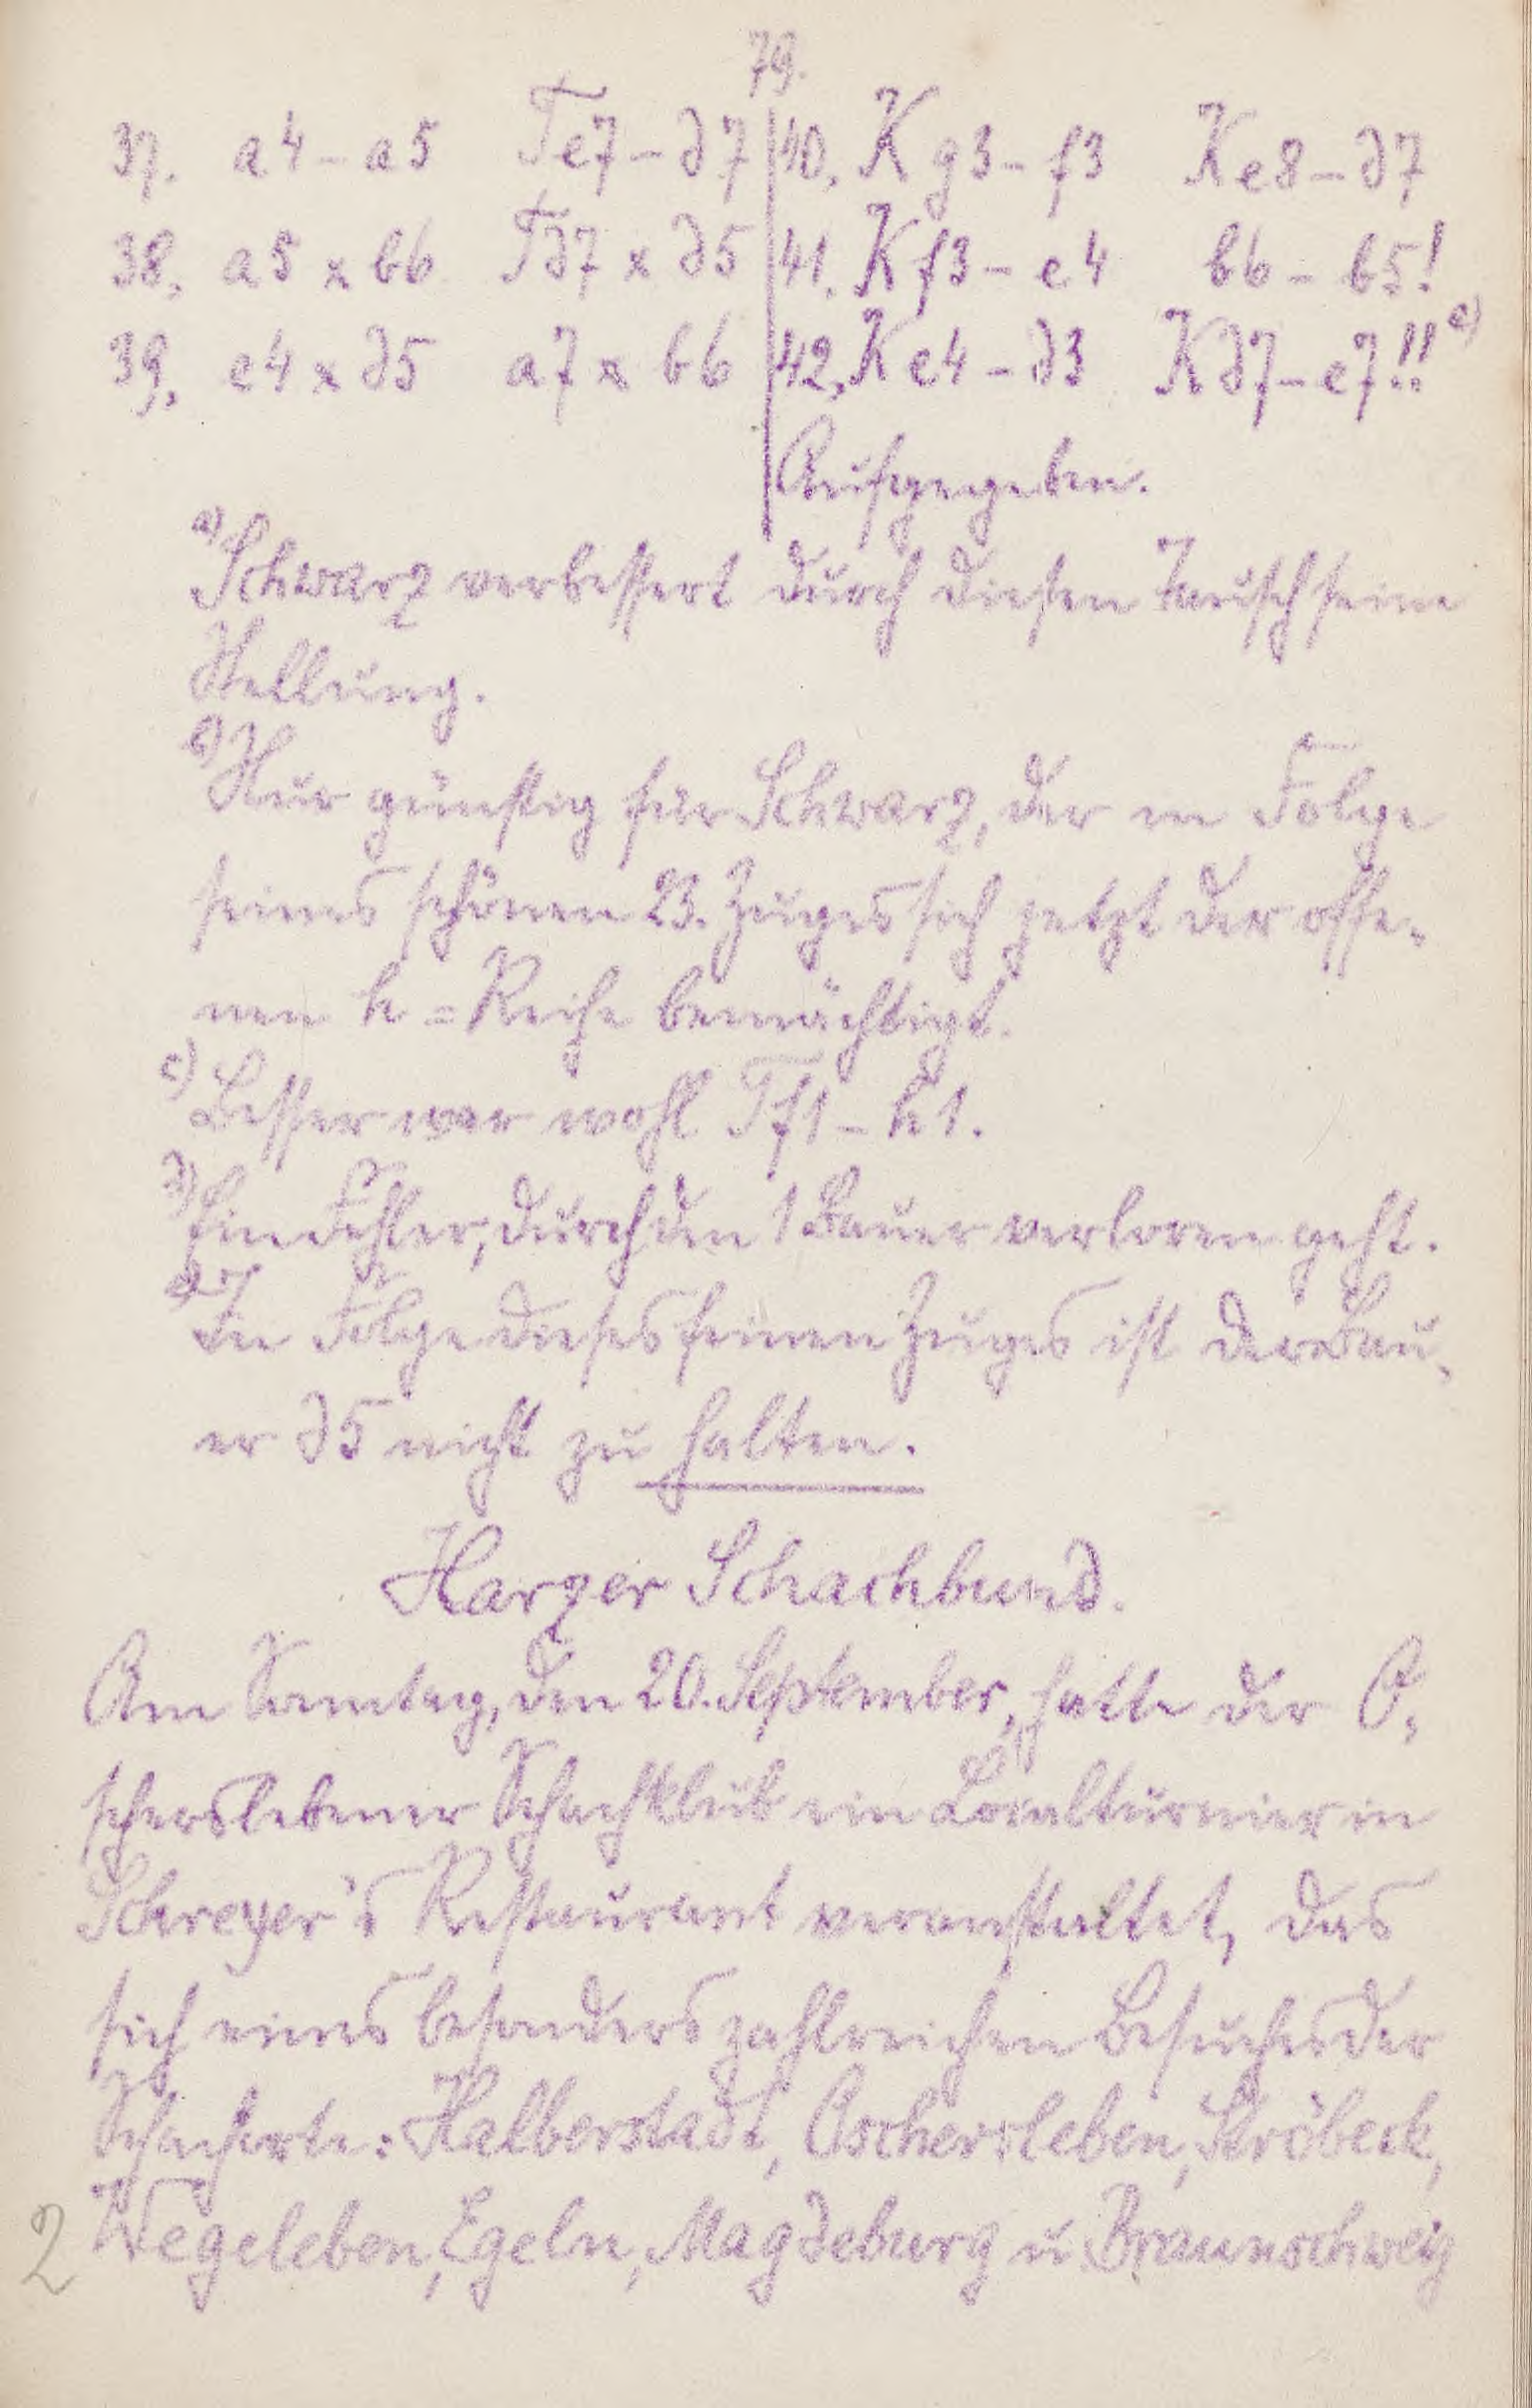 79.
37. a4–a5 Te7–d7
38. a5 x b6 Td7 x d5
39. e4 x d5 a7 x b6
40. Kg3–f3 Ke8–d7
41. Kf3–e4 b6–b5!
42. Ke4–d3 Kd7–e7!! e)
Aufgegeben.
a) Schwarz verbessert durch diesen Tausch seine
Stellung.
b) Nur günstig für Schwarz, der in Folge
seines schönen 23. Zuges sich jetzt der offe-
nen h=Reihe bemächtigt.
c) Besser war wohl Tf1–h1.
d) Ein Fehler, durch den 1 Bauer verloren geht.
e) In Folge dieses feinen Zuges ist der Bau-
er d5 nicht zu halten.
Harzer Schachbund.
Am Sonntag, den 20. September, hatte der O-
scherslebener Schachklub ein Lokalturnier in
Schreyer's Restaurant veranstaltet, das
sich eines besonders zahlreichen Besuches der
Schachorte: Halberstadt, Oschersleben, Ströbeck,
Wegeleben, Egeln, Magdeburg u. Braunschweig
2